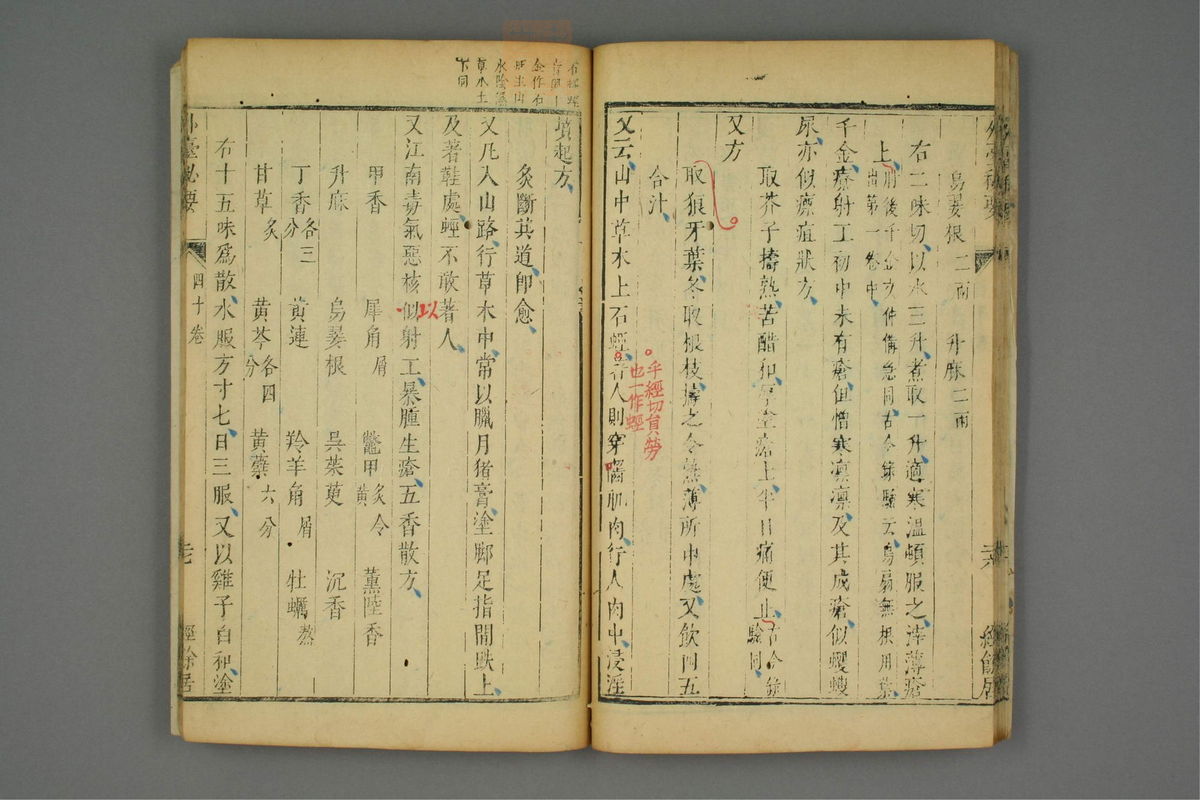 烏翣根二兩 升麻二兩
右二味切以水三升煮取一升適寒溫頓服之滓薄瘡
上肘後千金文仲備急同古今錄驗云烏扇無根用葉
出第一卷中
千金療射工初中未有瘡但憎寒凛凛及其成瘡似蠼螋
尿亦似瘭疽狀方
取芥子擣熟苦醋和厚塗瘡上半日痛便止古今錄
驗同
又方
取狼牙葉冬取根枝擣之令熟薄所中處又飲四五
合汁
又云山中草木上石蛭着人則穿嚙肌肉行人肉中浸淫
乎經切負勞
也一作蛭
墳起方
灸斷其道即愈
又凡入山路行草木中常以臘月猪膏塗脚足指間趺上
及著鞋處蛭不敢著人
又江南毒氣惡核似射工暴腫生瘡五香散方
以
甲香 犀角屑 鼈甲炙令黄 薰陸香
升麻 烏翣根 吳茱萸 沉香
丁香各三分 黃連 羚羊角屑 牡蠣熬
甘草炙 黃芩各四分 黃蘗六分
右十五味爲散水服方寸七日三服又以雞子白和塗
外臺秘要 四十卷 經餘居